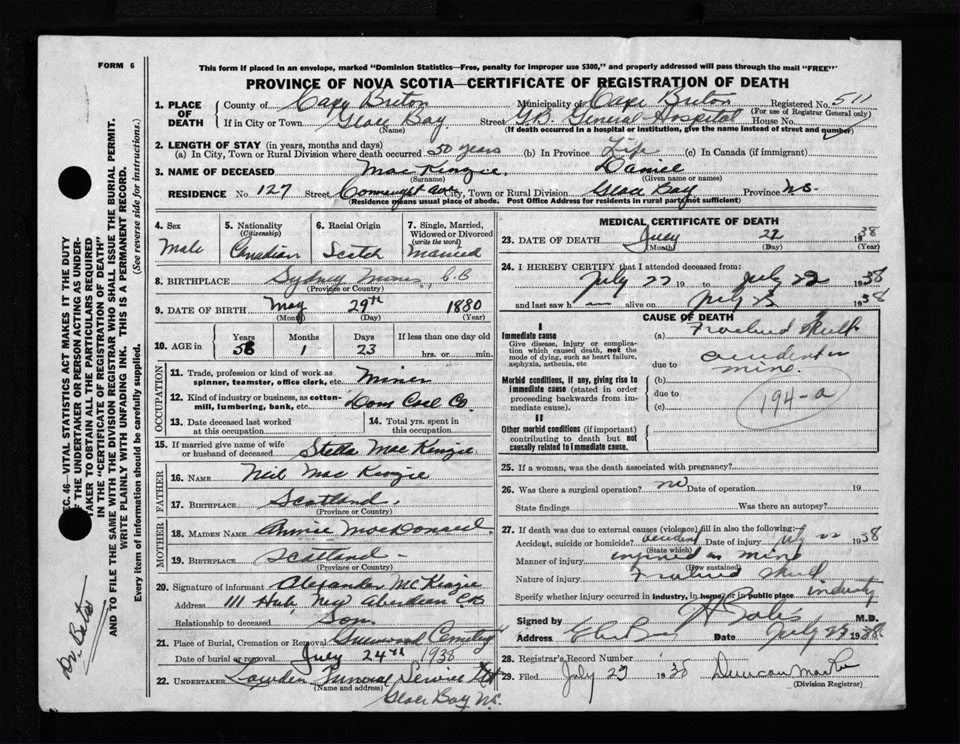 FORM 6
This form if placed in an envelope, marked "Dominion Statistics—Free, penalty for improper use $300," and properly addressed will pass through the mail "FREE"
PROVINCE OF NOVA SCOTIA—CERTIFICATE OF REGISTRATION OF DEATH
1. PLACE OF DEATH County of Cape Breton Municipality of Cape Breton Registered No. 511
(For use of Registrar General only)
If in City or Town Glace Bay Street G.B. General Hospital House No.
(Name) (If death occurred in a hospital or institution, give the name instead of street and number)
2. LENGTH OF STAY (in years, months and days)
(a) In City, Town or Rural Division where death occurred 50 years (b) In Province Life (c) In Canada (if immigrant)
3. NAME OF DECEASED MacKenzie Daniel
(Surname) (Given name or names)
RESIDENCE No. 127 Street Connaught Ave City, Town or Rural Division Glace Bay Province N.S.
(Residence means usual place of abode. Post Office Address for residents in rural parts not sufficient)
4. Sex Male
5. Nationality (Citizenship) Canadian
6. Racial Origin Scotch
7. Single, Married, Widowed or Divorced (write the word) Married
8. BIRTHPLACE Sydney Mines, C.B
(Province or Country)
9. DATE OF BIRTH May 29th 1880
(Month) (Day) (Year)
10. AGE in Years 58 Months 1 Days 23 If less than one day old hrs. or min.
OCCUPATION
11. Trade, profession or kind of work as spinner, teamster, office clerk, etc. Miner
12. Kind of industry or business, as cotton-mill, lumbering, bank, etc. Dom Coal Co.
13. Date deceased last worked at this occupation
14. Total yrs. spent in this occupation
15. If married give name of wife or husband of deceased Stella MacKenzie
FATHER
16. NAME Neil MacKenzie
17. BIRTHPLACE Scotland.
(Province or Country)
MOTHER
18. MAIDEN NAME Annie MacDonald
19. BIRTHPLACE Scotland -
(Province or Country)
20. Signature of informant Alexander McKenzie
Address 111 Hub New Aberdeen C.B
Relationship to deceased Son.
21. Place of Burial, Cremation or Removal Greenwood Cemetery
Date of burial or removal July 24th 1938
22. UNDERTAKER Lowden Funeral Service Ltd
(Name and address)
Glace Bay N.S.
MEDICAL CERTIFICATE OF DEATH
23. DATE OF DEATH July 22 1938
(Month) (Day) (Year)
24. I HEREBY CERTIFY that I attended deceased from:
July 22 19 to July 22 1938
and last saw h alive on July 22 1938
CAUSE OF DEATH
I
Immediate cause
Give disease, injury or complication which caused death, not the mode of dying, such as heart failure, asphyxia, asthenia, etc.
(a) Fractured Skull
due to accident in mine.
Morbid conditions, if any, giving rise to immediate cause (stated in order proceeding backwards from immediate cause).
(b)
due to
(c)
194-a
II
Other morbid conditions (if important) contributing to death but not causally related to immediate cause.
25. If a woman, was the death associated with pregnancy?
26. Was there a surgical operation? no Date of operation 19
State findings Was there an autopsy?
27. If death was due to external causes (violence) fill in also the following:
Accident, suicide or homicide? accident Date of injury July 22 1938
(State which)
Manner of injury injured in mine
(How sustained)
Nature of injury Fractured Skull
Specify whether injury occurred in industry, in home, or in public place industry
Signed by M.D.
Address Glace Bay Date July 23 1938
28. Registrar's Record Number
29. Filed July 23 1938 Duncan
(Division Registrar)
SEC. 46—VITAL STATISTICS ACT MAKES IT THE DUTY
OF THE UNDERTAKER OR PERSON ACTING AS UNDERTAKER TO OBTAIN ALL THE PARTICULARS REQUIRED
IN THE "CERTIFICATE OF REGISTRATION OF DEATH"
AND TO FILE THE SAME WITH THE DIVISION REGISTRAR WHO SHALL ISSUE THE BURIAL PERMIT.
WRITE PLAINLY WITH UNFADING INK. THIS IS A PERMANENT RECORD.
Every item of information should be carefully supplied. (See reverse side for instructions.)
Dr.